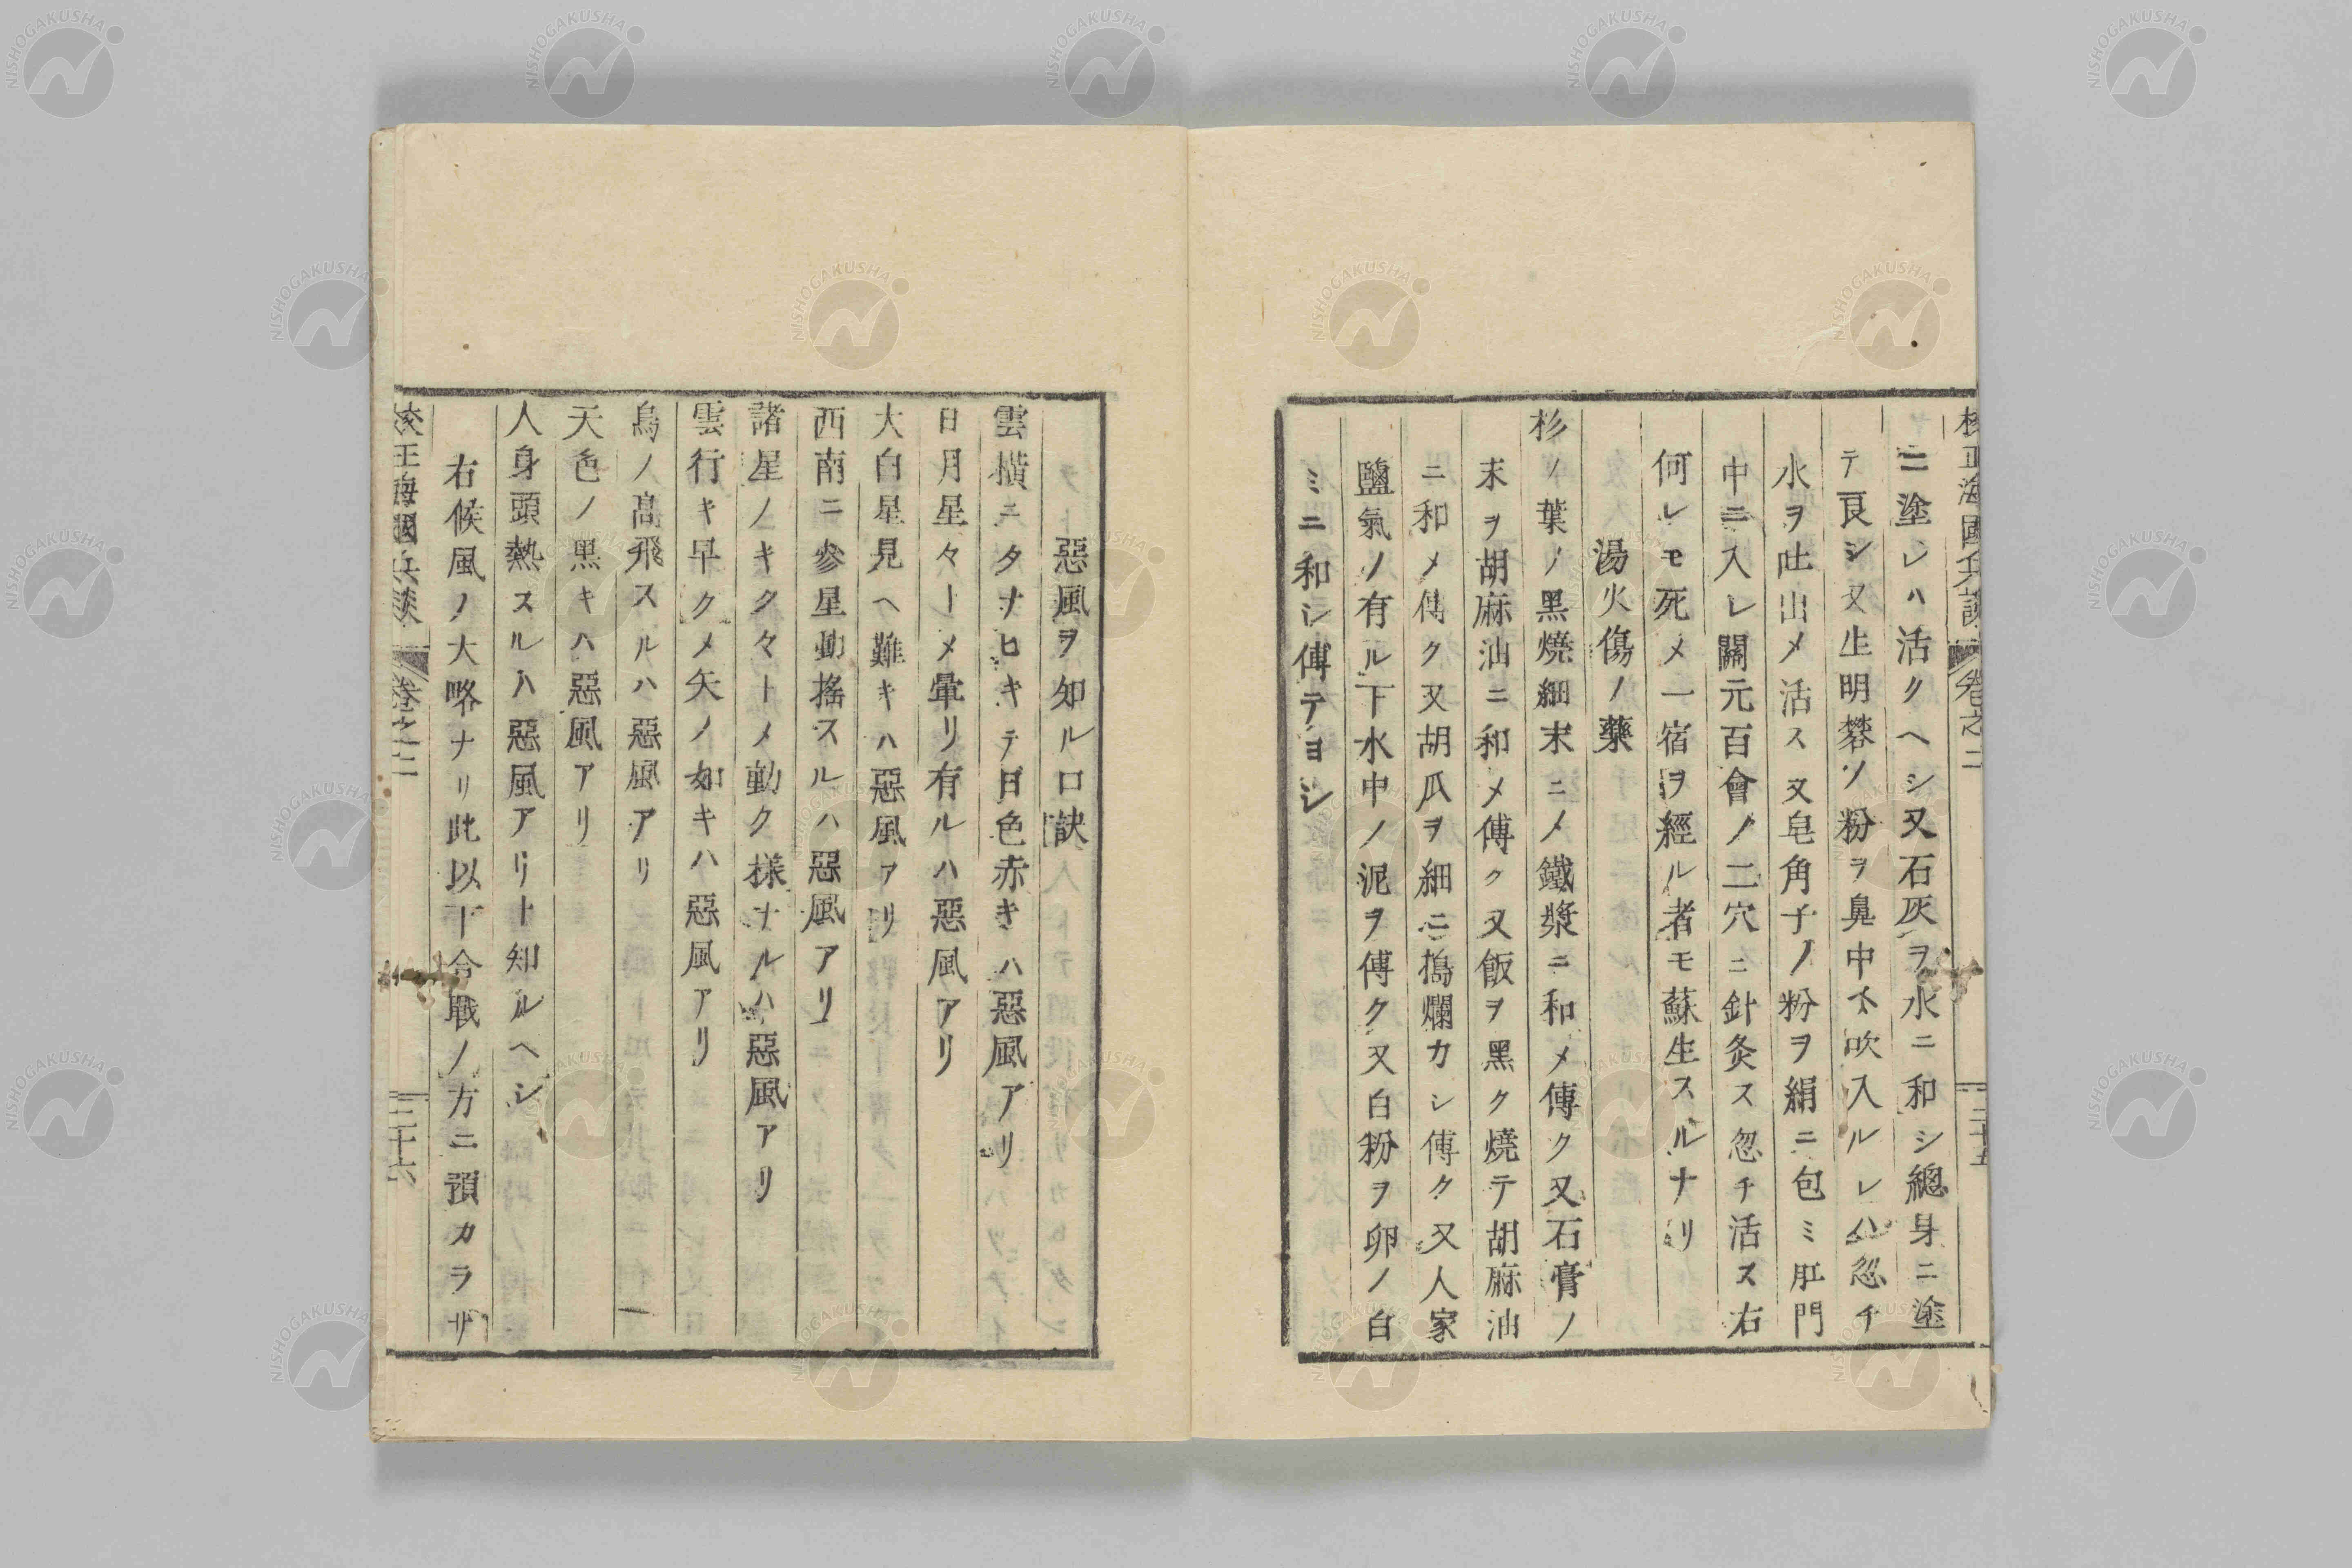 校正海國兵談 卷之二 三十五
ニ塗レハ活クヘシ又石灰ヲ水ニ和シ總身ニ塗
テ良シ又生明礬ノ粉ヲ鼻中ヘ吹入ルレハ忽チ
水ヲ吐出メ活ス又皂角子ノ粉ヲ絹ニ包ミ肛門
中ニ入レ關元百會ノ二穴ニ針灸ス忽チ活ス右
何レモ死メ一宿ヲ經ル者モ蘇生スルナリ
湯火傷ノ藥
杉ノ葉ノ黒燒細末ニメ鐵漿ニ和メ傳ク又石膏ノ
末ヲ胡麻油ニ和メ傳ク又飯ヲ黑ク燒テ胡麻油
ニ和メ傳ク又胡瓜ヲ細ニ搗爛カシ傳ク又人家
鹽氣ノ有ル下水中ノ泥ヲ傳ク又白粉ヲ卵ノ白
ミニ和シ傳テヨシ
惡風ヲ知ル口訣
雲橫ニタナヒキテ日色赤キハ惡風アリ
日月星々ーメ暈リ有ルハ惡風アリ
大白星見ヘ難キハ惡風アリ
西南ニ參星動搖スルハ惡風アリ
諸星ノキタ々トメ動ク樣ナルハ惡風アリ
雲行キ早クメ矢ノ如キハ惡風アリ
鳥ノ髙飛スルハ惡風アリ
天色ノ黑キハ惡風アリ
人身頭熱スルハ惡風アリト知ルヘシ
右候風ノ大略ナリ此以下合戰ノ方ニ預カラザ
校正海國兵談 卷之二 三十六
NISHOGAKUSHA